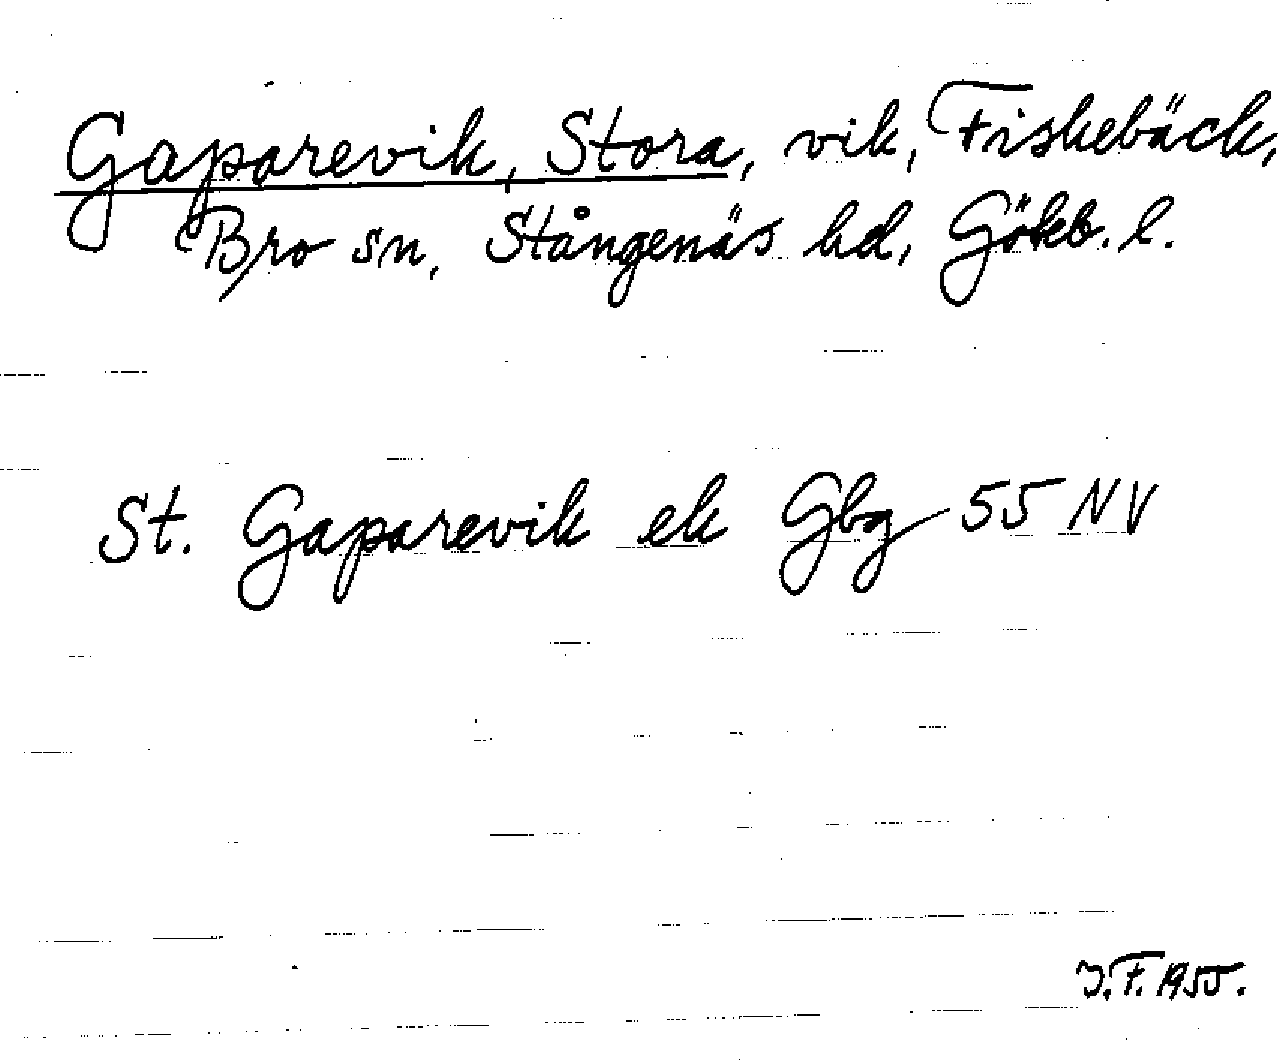 Gaparevik, Stora, vik, Fiskebäck,
Bro sn, Stångenäs hd, Gökb. l.
St. Gaparevik ek Gbg 55 NV
J.F. 1955.